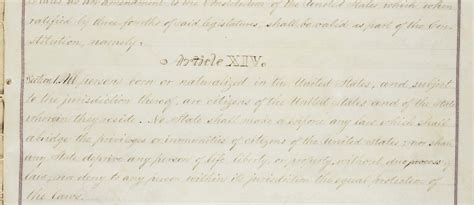 as an amendment to the Constitution of the United States which when
ratified by three fourths of said legislatures, shall be valid as part of the Con-
stitution, namely.
Article XIV.
Section 1. All persons born or naturalized in the United States, and subject
to the jurisdiction thereof, are citizens of the United States and of the State
wherein they reside. No State shall make or enforce any law which shall
abridge the privileges or immunities of citizens of the United States; nor shall
any State deprive any person of life, liberty, or property, without due process of
law; nor deny to any person within its jurisdiction the equal protection of
the laws.